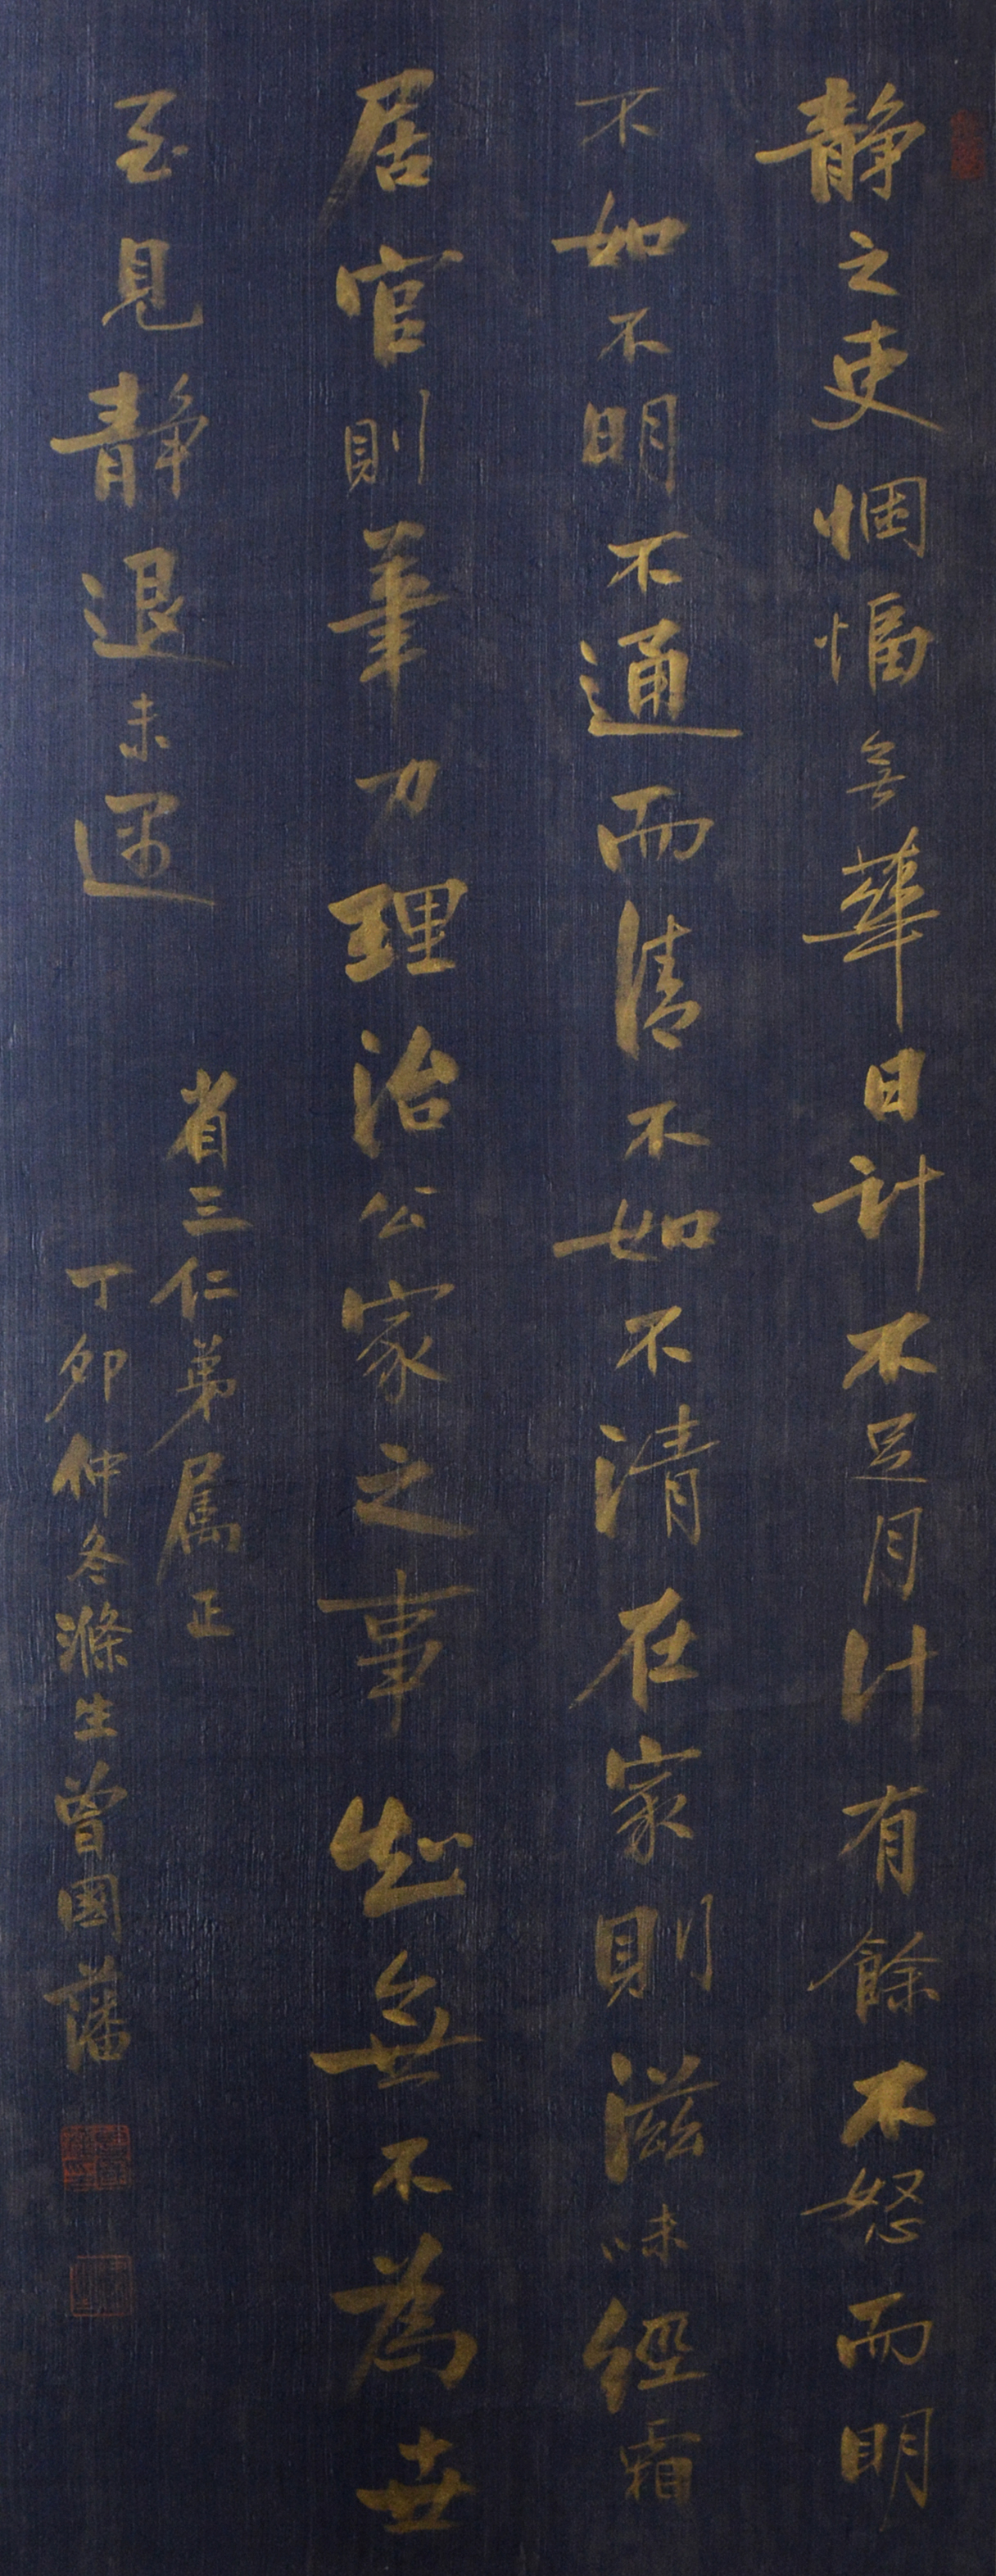 靜之吏悃愊無華日計不足月計有餘不怒而明
不如不明不通而清不如不清在家則滋味經霜
居官則筆力理治公家之事知無不為世
至見靜退未遇
省三仁弟属正
丁卯仲冬滌生曾國藩